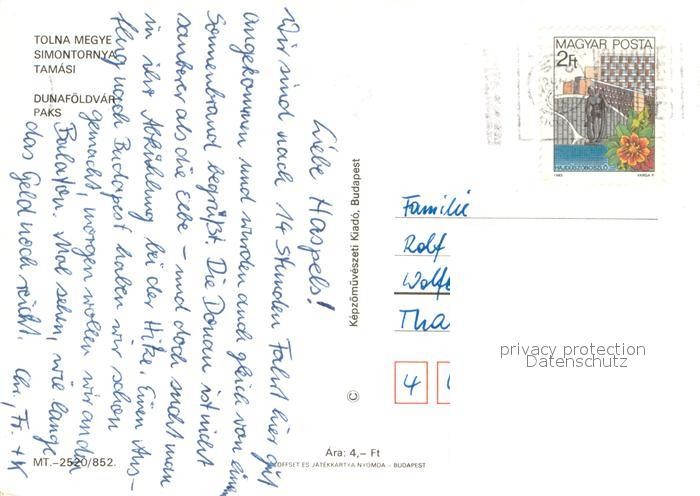 TOLNA MEGYE
SIMONTORNYA
TAMÁSI
DUNAFÖLDVÁR
PAKS
Liebe Haspels!
Wir sind nach 14 Stunden Fahrt hier gut
angekommen und wurden auch gleich von einem
Sonnenbrand begrüßt. Die Donau ist nicht
sauberer als die Elbe – und doch sucht man
in ihr Abkühlung bei der Hitze. Einen Aus-
flug nach Budapest haben wir schon
gemacht, morgen wollen wir an den
Balaton. Mal sehen, wie lange
das Geld noch reicht. Chr., Fr. + K
MT.–2520/852.
Képzőművészeti Kiadó, Budapest
©
Ára: 4,– Ft
OFFSET ÉS JÁTÉKKÁRTYA NYOMDA – BUDAPEST
MAGYAR POSTA
2Ft
HAJDÚSZOBOSZLÓ
1983 VARGA P.
Familie
Rolf
Wolf
Tha
4
privacy protection
Datenschutz